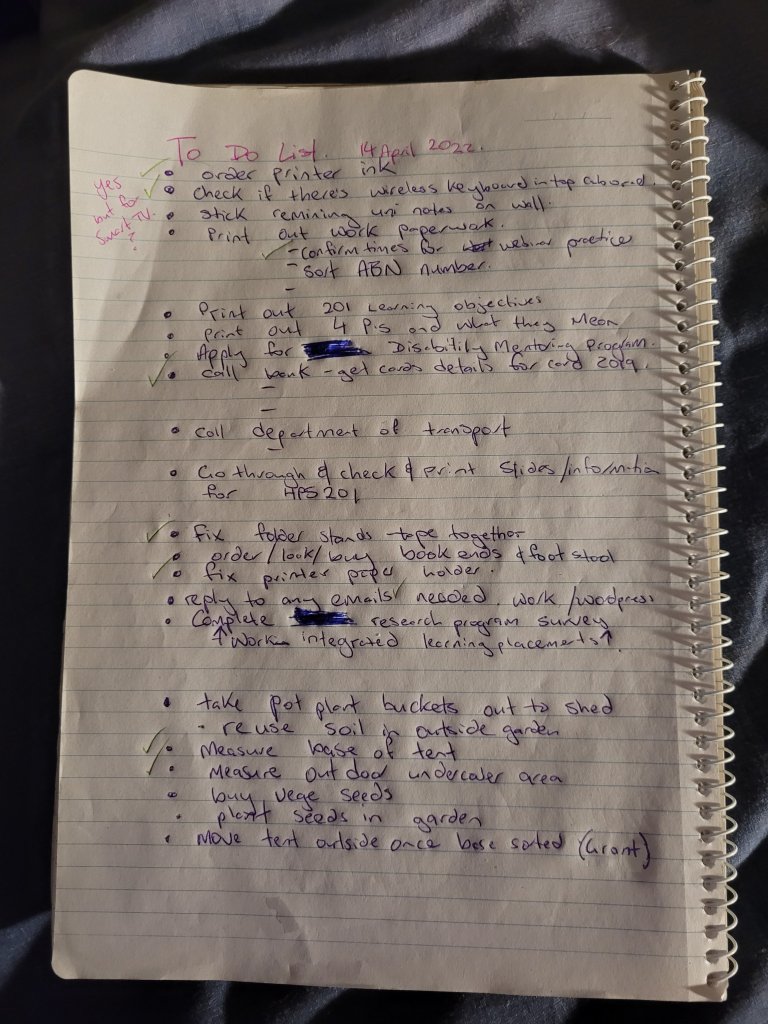 To Do List. 14 April 2022.
• order printer ink
yes but for Smart TV. ?
• check if there's wireless keyboard in top cuboard.
• stick remining uni notes on wall.
• Print out work paperwork.
- confirm times for webinar practice
- Sort ABN number.
-
• Print out 201 Learning objectives
• print out 4 P's and what they Mean
• Apply for Disability Mentoring Program.
• call bank - get cards details for card 2019.
-
-
• call department of transport
-
• Go through & check & print slides/information
for HPS201
• fix folder stands - tape together
• order/look/buy book ends & foot stool
• fix printer paper holder.
• reply to any emails needed. work/wordpress
• Complete research program survey
↑ Work integrated learning placements ↑.
• take pot plant buckets out to shed
- reuse soil in outside garden
• Measure base of tent
• Measure outdoor undercover area
• buy vege seeds
• plant seeds in garden
• Move tent outside once base sorted (Grant)